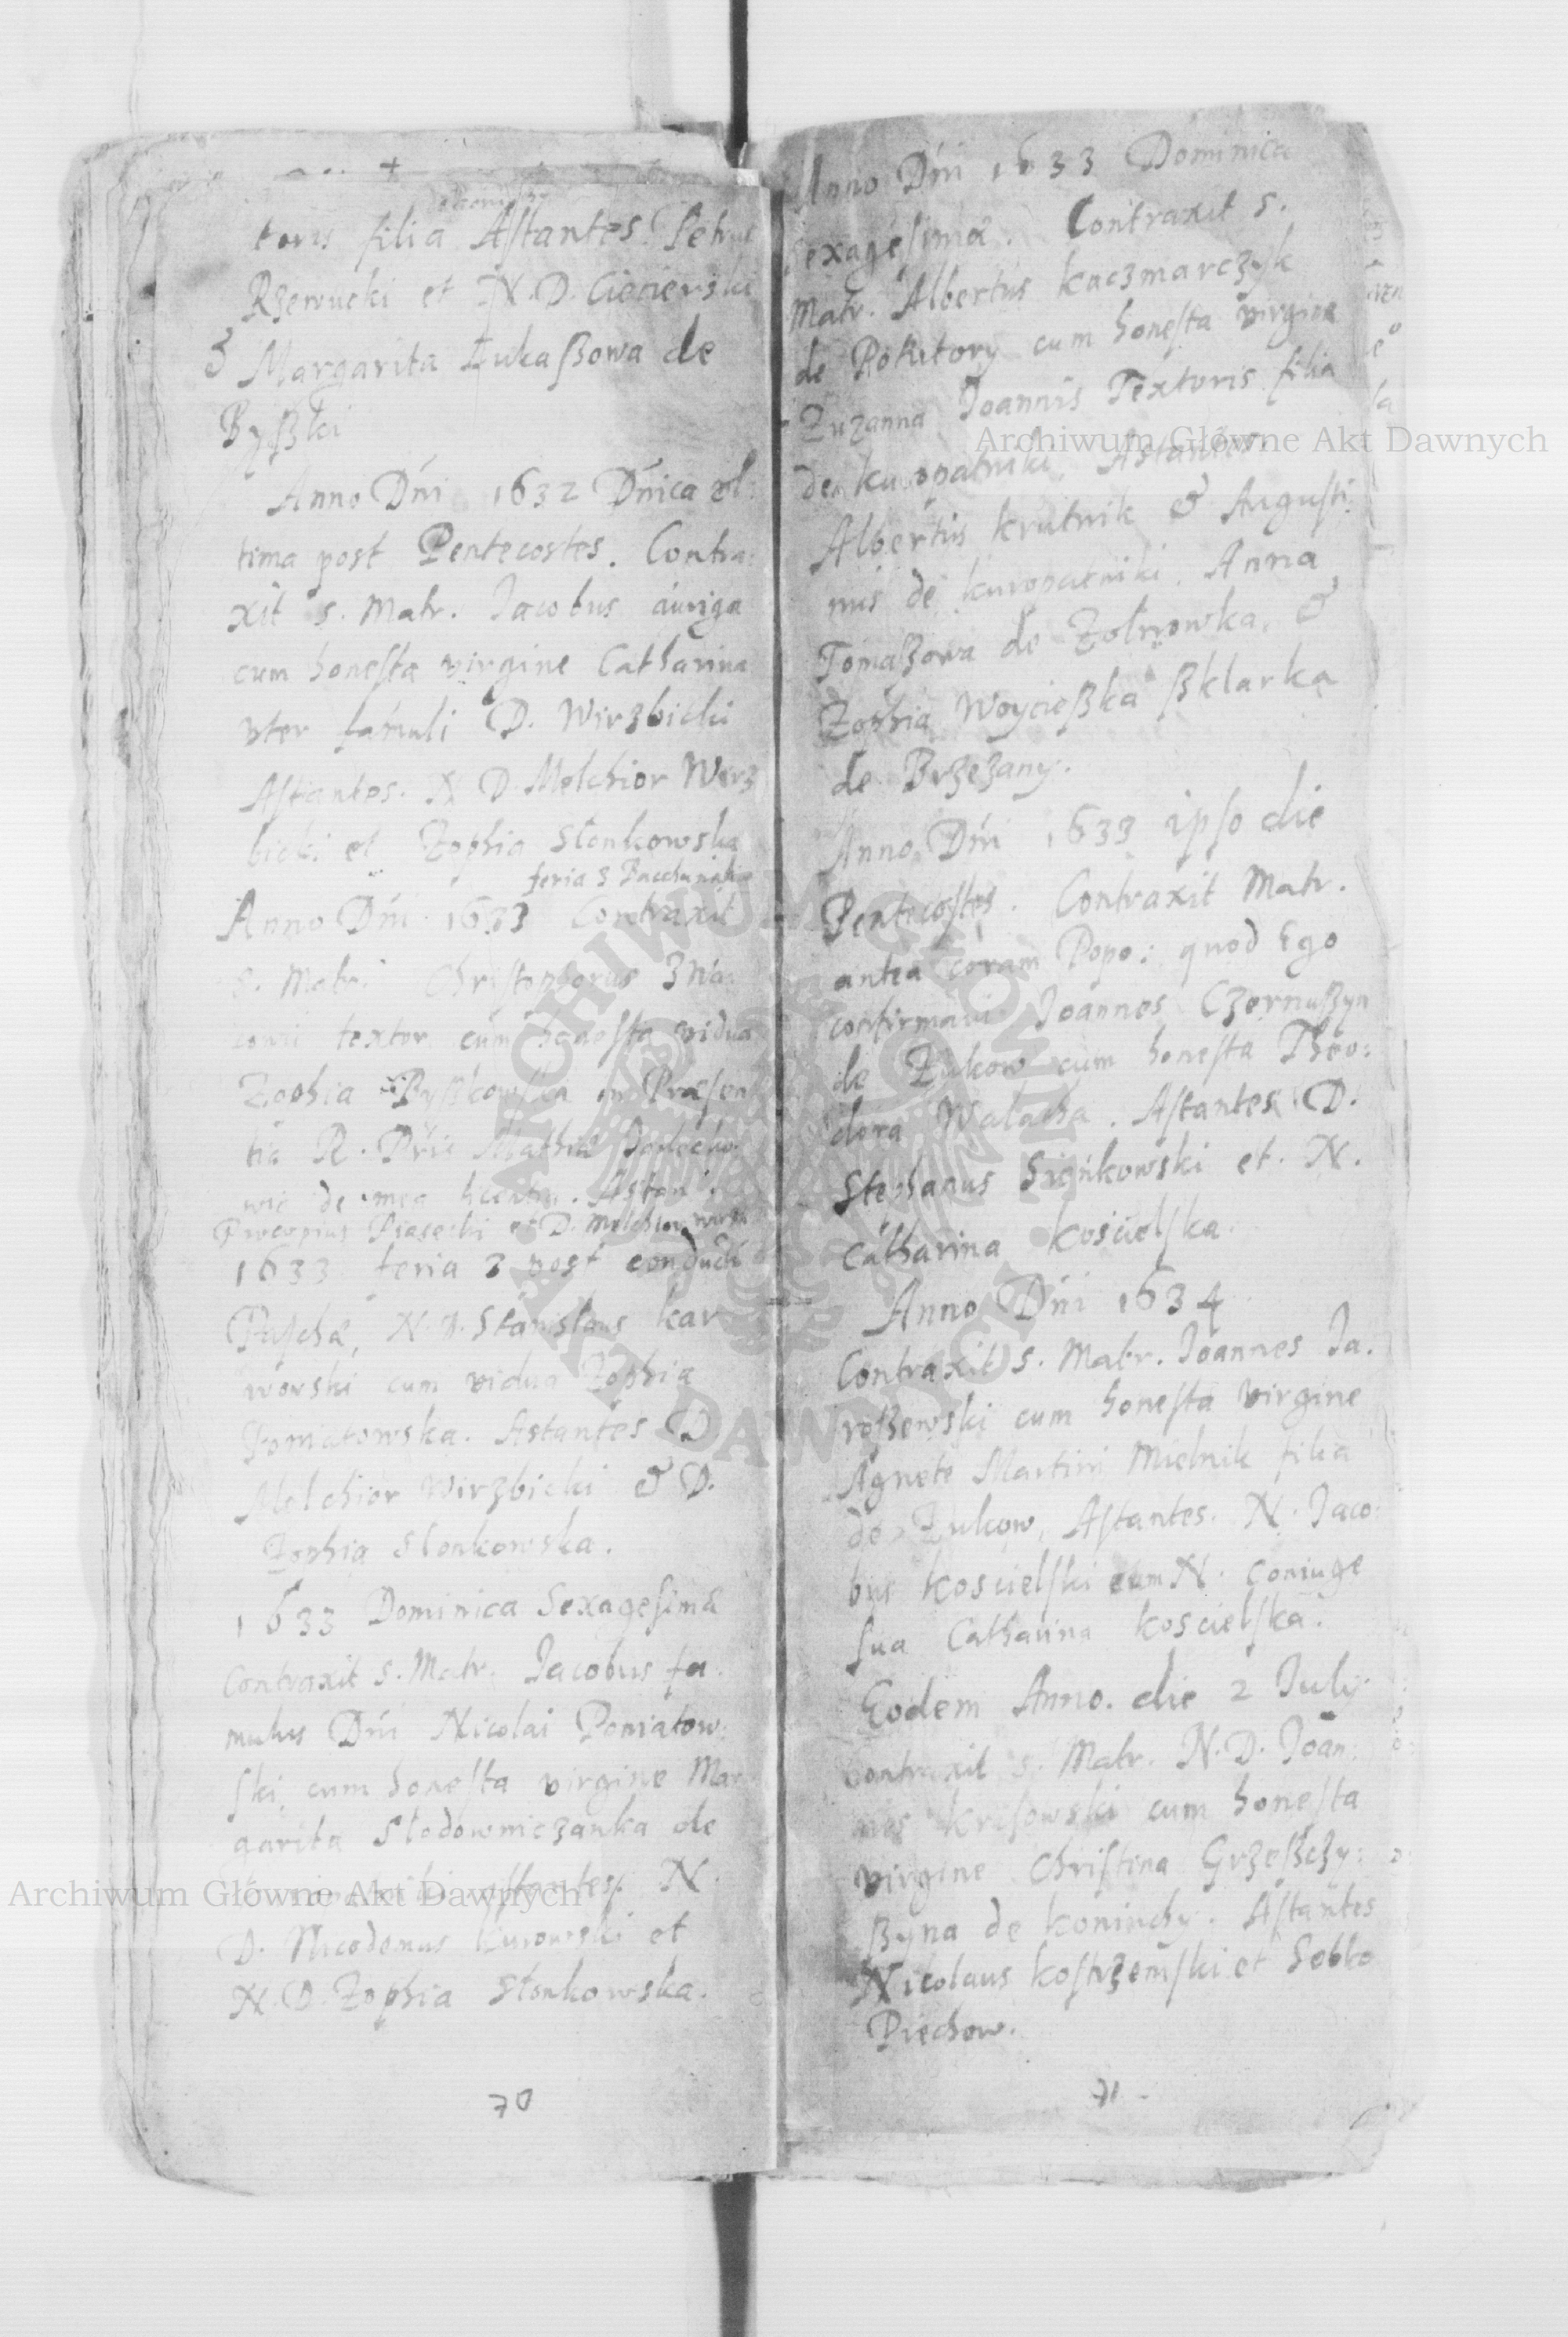 toris filia Astantes. Petrus
Rzewucki et N. D. Ciecierski
& Margarita Łukaßowa de
Byßki
Anno Dńi 1632 Dńica vl:
tima post Pentecostes. Contra:
xit s. Matr. Iacobus auriga
cum honesta virgine Catharina
vter famuli D. Wirzbicki
Astantes. N D. Melchior Wirz
bicki et Zophia Słonkowska
feria 3 Bacchanalior
Anno Dńi 1633 Contraxit
s. Matr. Christophorus
textor cum honesta vidua
Zophia Byßkowska in Præsen
tia R. Mathiæ
de mea
Procopius Piasecki et D. Melchior
1633 feria 3 post conduct
Paschæ, N. D. Stanislaus Kar
wowski cum vidua Zophia
Astantes D.
Melchior Wirzbicki & D.
Zophia Słonkowska.
1633 Dominica Sexagesimæ
Contraxit s. Matr. Iacobus fa:
mulus Dńi Nicolai Poniatow:
ski, cum honesta virgine Mar
garita Słodowniczanka de
Astantes. N.
D. Nicodemus Kurowski et
N. D. Zophia Słonkowska.
70
Anno Dńi 1633 Dominica
Sexagesimæ. Contraxit s.
Matr. Albertus Kaczmarczyk
de cum honesta virgine
Zuzanna Ioannis Textoris filia
de Kuropatniki. Astantes.
Albertus Krutnik & Augusti:
nus de Kuropatniki. Anna
Tomaßowa de Zolnowka. &
Zophia Woycießka ßklarka
de Brzezany.
Anno Dńi 1633 ipso die
Pentecostes. Contraxit Matr.
antea coram Popo: quod Ego
confirmaui Ioannes Czernußyn
de Zukow cum honesta Theo:
dora Walacha. Astantes D.
Stephanus Sieńkowski et. N.
Catharina Koscielska.
Anno Dńi 1634
Contraxit s. Matr. Ioannes Ia:
roßewski cum honesta virgine
Agnete Martini Mielnik filia
de Zukow, Astantes. N. Iaco:
bus Koscielski cum N. Coniuge
sua Catharina Koscielska.
Eodem Anno. die 2 Iulij.
Contraxit s. Matr. N. D. Ioan:
nes Krisowski cum honesta
virgine Christina Grzeßczy:
ßyna de Koniuchy. Astantes
Nicolaus Kostrzemski et Sobko
Piechow.
71
Archiwum Główne Akt Dawnych
Archiwum Główne Akt Dawnych
ARCHIWUM GŁÓWNE AKT DAWNYCH